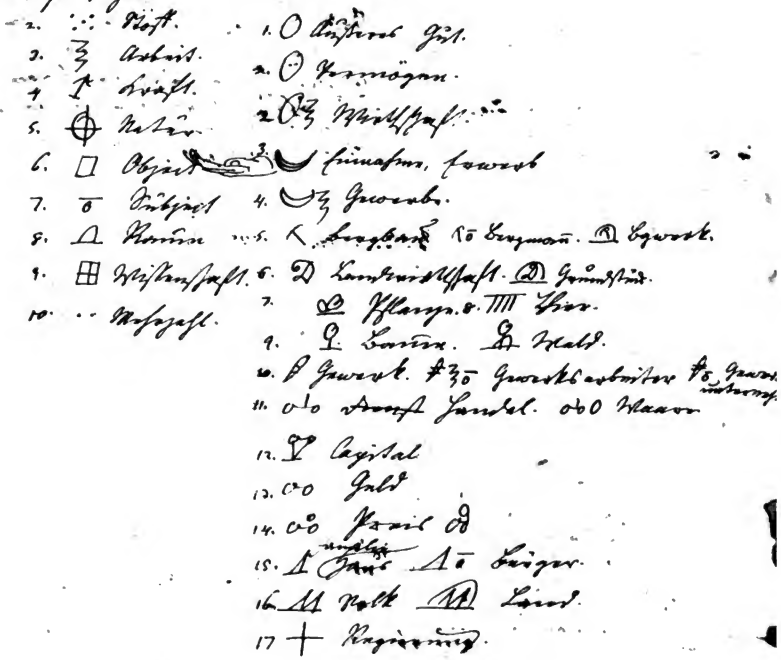 2. Stoff.
3. Arbeit.
4 Kraft.
5. Natur
6. Object
7. Subject
8. Raum
9. Wissenschaft.
10. Mehrzahl.
1. Äußeres Gut.
2. Vermögen.
2. Wirthschaft
3. Einnahme, Erwerb
4. Gewerbe.
5. Bergbau Bergmann. Bgwerk.
6. Landwirthschaft. Grundstück.
7. Pflanze. 8. Thier.
9. Baum. Wald.
10. Gewerk. Gewerksarbeiter Gewer
unterneh
11. Dienst Handel. Waare
12. Capital
13. Geld
14. Preis
15. Haus Bürger.
16. Volk Land.
17 Regierung.